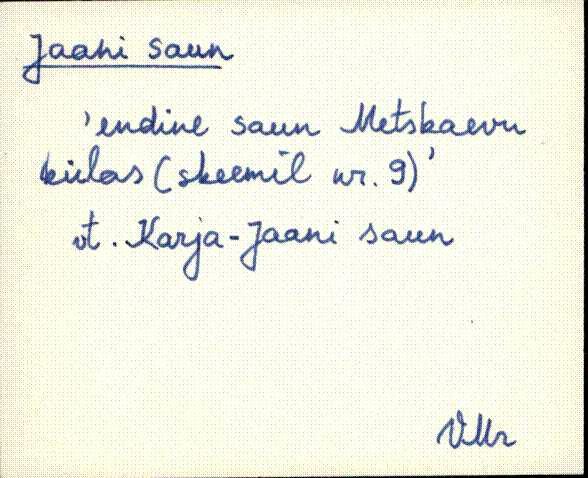 Jaani saun
'endine saun Metskaevu
külas (skeemil nr. 9)'
vt. Karja-Jaani saun
VMr